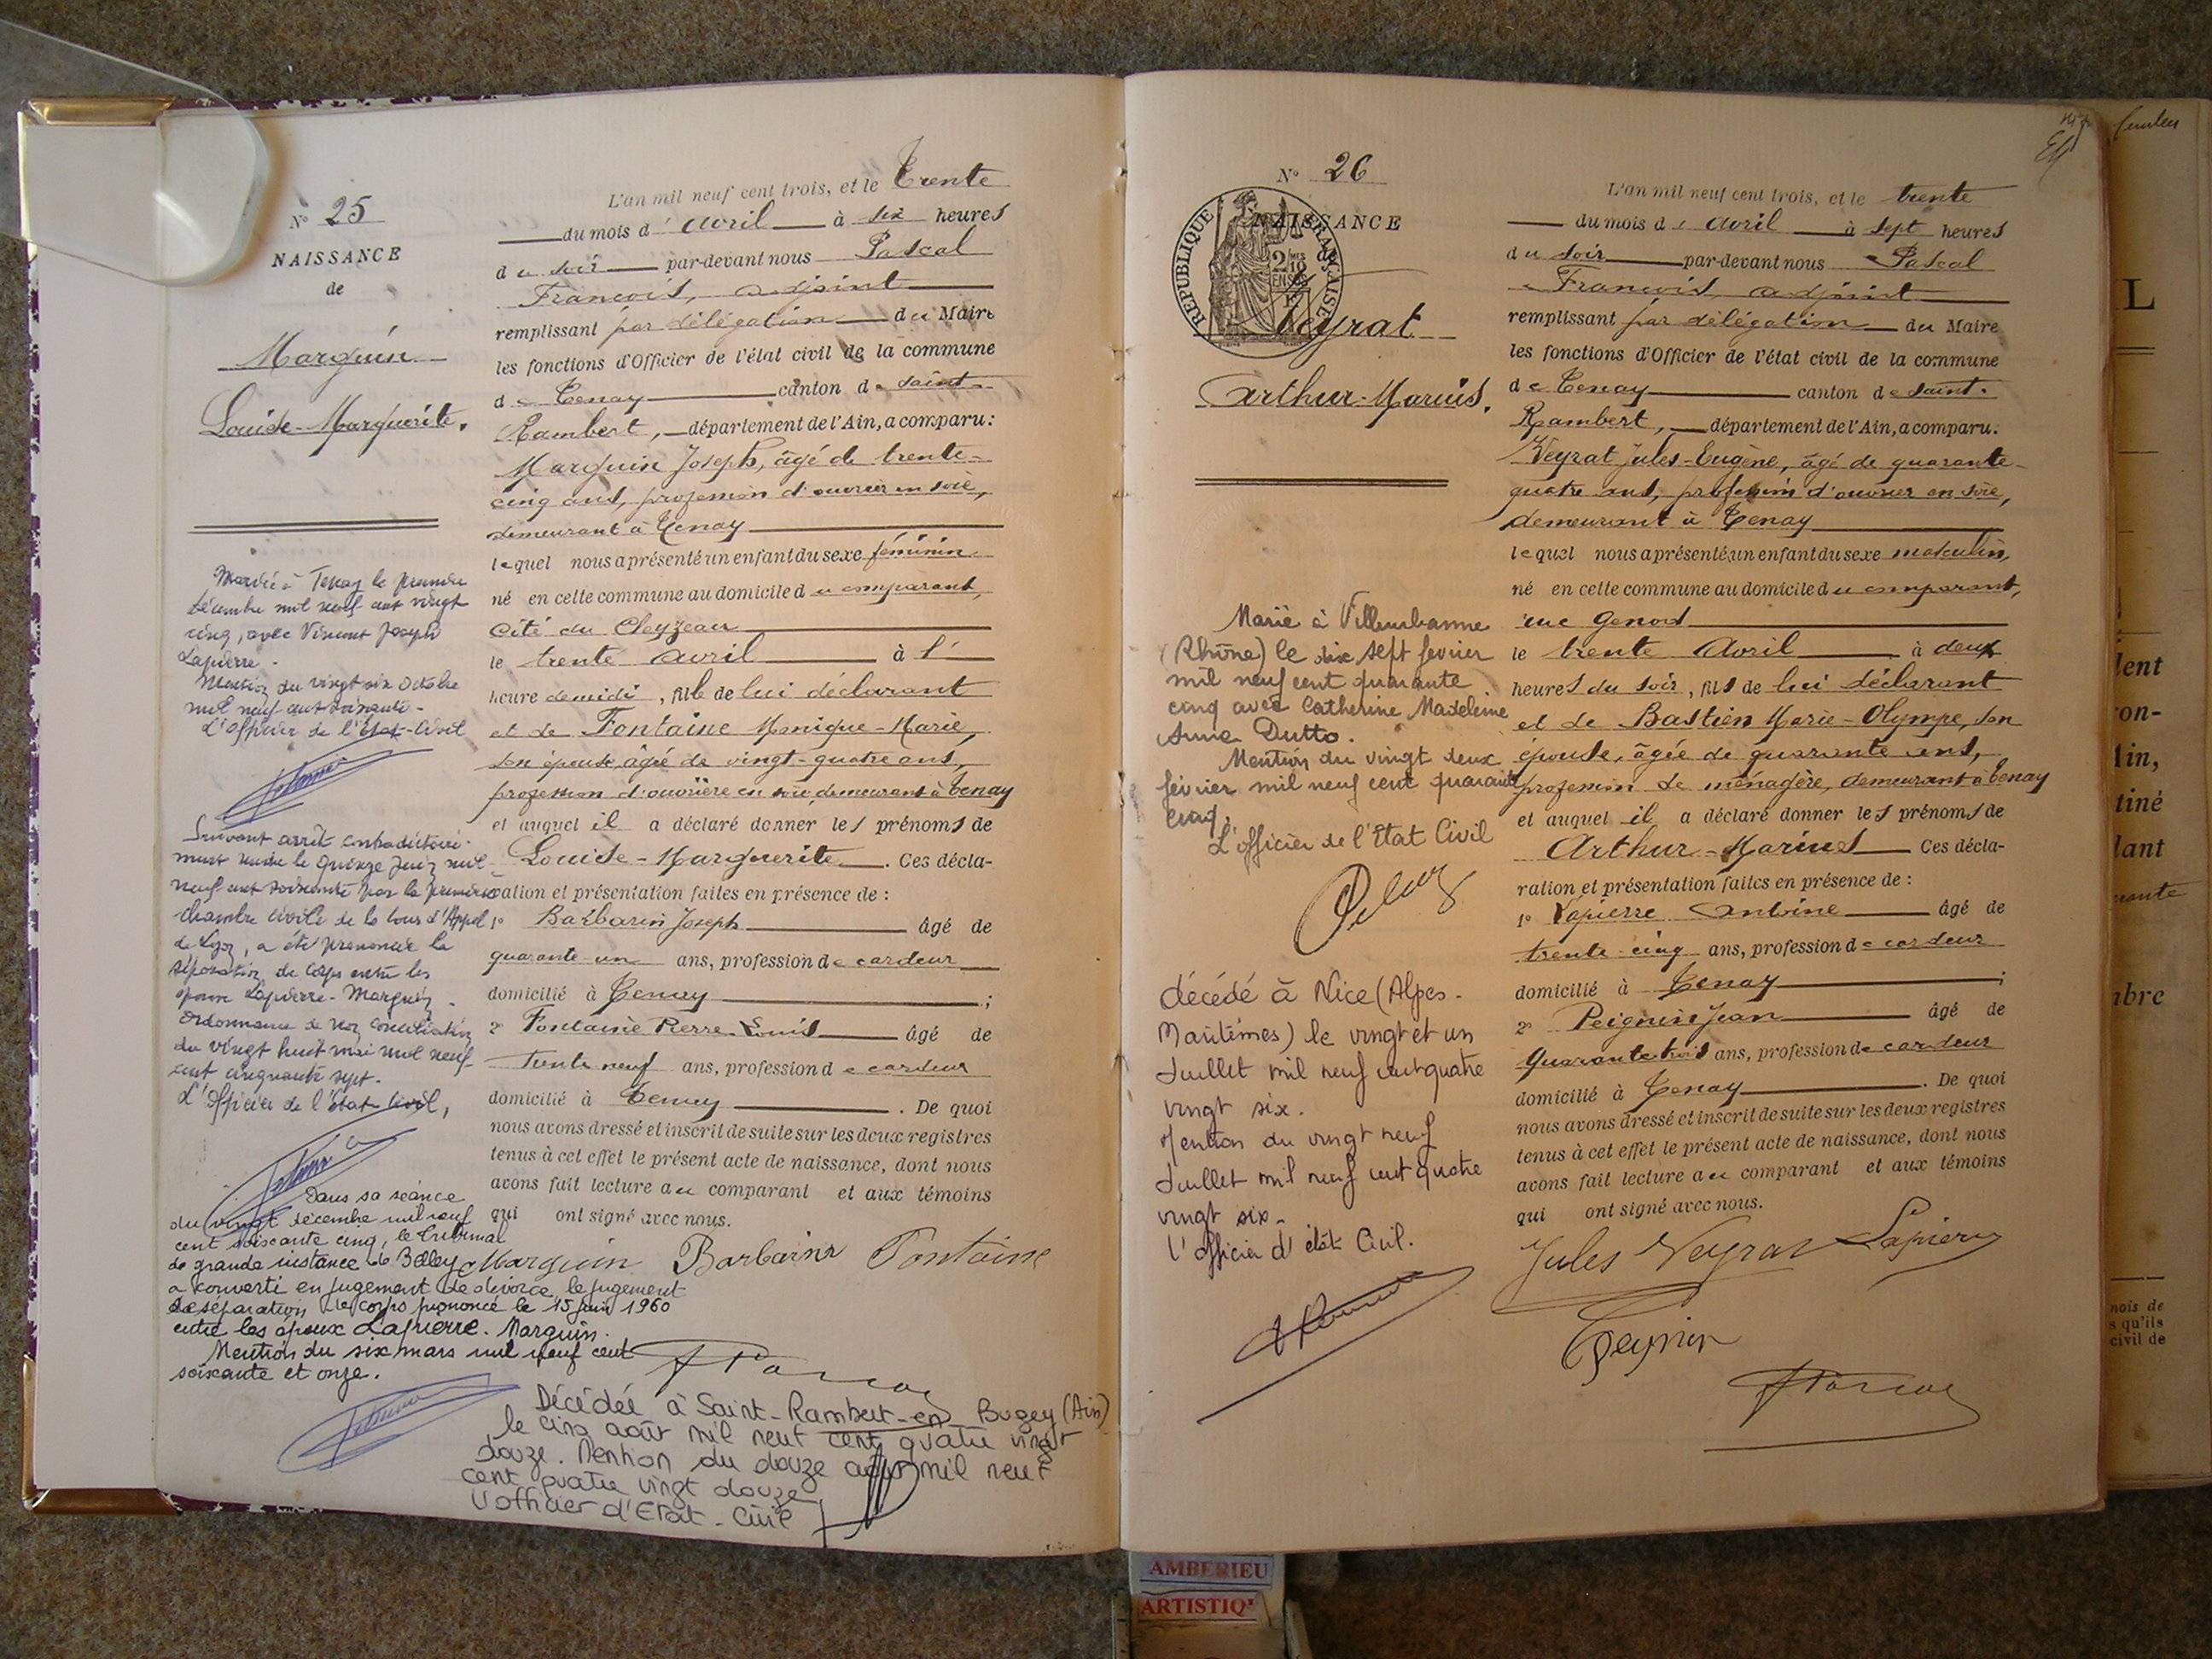 N° 25
NAISSANCE
de
Marquin
Louise-Marguerite.
L'an mil neuf cent trois, et le Trente
du mois d' Avril à six heures
du soir par-devant nous Pascal
François, adjoint
remplissant par délégation du Maire
les fonctions d'Officier de l'état civil de la commune
de Tenay canton de Saint-
Rambert, département de l'Ain, a comparu:
Marquin Joseph, âgé de trente-
cinq ans, profession d'ouvrier en soie,
demeurant à Tenay
lequel nous a présenté un enfant du sexe féminin
né en cette commune au domicile du comparant,
Cité du Cleyzeau
le trente avril à l'
heure de midi, fille de lui déclarant
et de Fontaine Monique-Marie,
son épouse, âgée de vingt-quatre ans,
profession d'ouvrière en soie, demeurant à Tenay
et auquel il a déclaré donner les prénoms de
Louise-Marguerite. Ces décla-
ration et présentation faites en présence de :
1° Barbarin Joseph âgé de
quarante-un ans, profession de cardeur
domicilié à Tenay ;
2° Fontaine Pierre Louis âgé de
trente neuf ans, profession de cardeur
domicilié à Tenay . De quoi
nous avons dressé et inscrit de suite sur les deux registres
tenus à cet effet le présent acte de naissance, dont nous
avons fait lecture au comparant et aux témoins
qui ont signé avec nous.
Marguin Barbarin Fontaine
Mariée à Tenay le premier
décembre mil neuf cent vingt
cinq, avec Vincent Joseph
Lapierre.
Mention du vingt six Octobre
mil neuf cent soixante-
L'Officier de l'Etat-Civil
Suivant arrêt contradictoire-
ment rendu le quinze Juin mil-
neuf cent soixante par la première
Chambre civile de la Cour d'Appel
de Lyon, a été prononcée la
séparation de Corps entre les
époux Lapierre-Marguin.
Ordonnance de non conciliation
du vingt huit mai mil neuf-
cent cinquante sept.
L'Officier de l'état civil,
Dans sa séance
du vingt décembre mil neuf
cent soixante cinq, le tribunal
de grande instance de Belley
a converti en jugement de divorce le jugement
de séparation de corps prononcé le 15 juin 1960
entre les époux Lapierre. Marguin.
Mention du six mars mil neuf cent
soixante et onze.
Décédée à Saint-Rambert-en Bugey (Ain)
le cinq août mil neuf cent quatre vingt
douze. Mention du douze août mil neuf
cent quatre vingt douze
l'officier d'Etat-Civil
N° 26
NAISSANCE
de
REPUBLIQUE FRANÇAISE
Veyrat
Arthur-Marius.
L'an mil neuf cent trois, et le trente
du mois d' Avril à sept heures
du soir par-devant nous Pascal
François, adjoint
remplissant par délégation du Maire
les fonctions d'Officier de l'état civil de la commune
de Tenay canton de Saint-
Rambert, département de l'Ain, a comparu.
Veyrat Jules-Eugène, âgé de quarante-
quatre ans, profession d'ouvrier en soie,
demeurant à Tenay
lequel nous a présenté un enfant du sexe masculin,
né en cette commune au domicile du comparant,
rue Genod
le trente Avril à deux
heures du soir, fils de lui déclarant
et de Bastien Marie-Olympe, son
épouse, âgée de quarante ans,
profession de ménagère, demeurant à Tenay
et auquel il a déclaré donner les prénoms de
Arthur-Marius Ces décla-
ration et présentation faites en présence de :
1° Lapierre Antoine âgé de
trente-cinq ans, profession de cardeur
domicilié à Tenay ;
2° Peignin Jean âgé de
Quarante trois ans, profession de cardeur
domicilié à Tenay . De quoi
nous avons dressé et inscrit de suite sur les deux registres
tenus à cet effet le présent acte de naissance, dont nous
avons fait lecture au comparant et aux témoins
qui ont signé avec nous.
Jules Veyrat Lapierre
Peignin
Marié à Villeurbanne
(Rhône) le dix sept fevrier
mil neuf cent quarante
cinq avec Catherine Madeleine
Anna Dutto.
Mention du vingt deux
février mil neuf cent quarante
cinq.
L'officier de l'Etat Civil
décédé à Nice (Alpes-
Maritimes) le vingt et un
Juillet mil neuf cent quatre
vingt six.
Mention du vingt neuf
Juillet mil neuf cent quatre
vingt six-
l'officier d'état Civil.
L
lent
on-
Ain,
tiné
lant
mbre
mois de
s qu'ils
civil de
AMBERIEU
ARTISTIQ